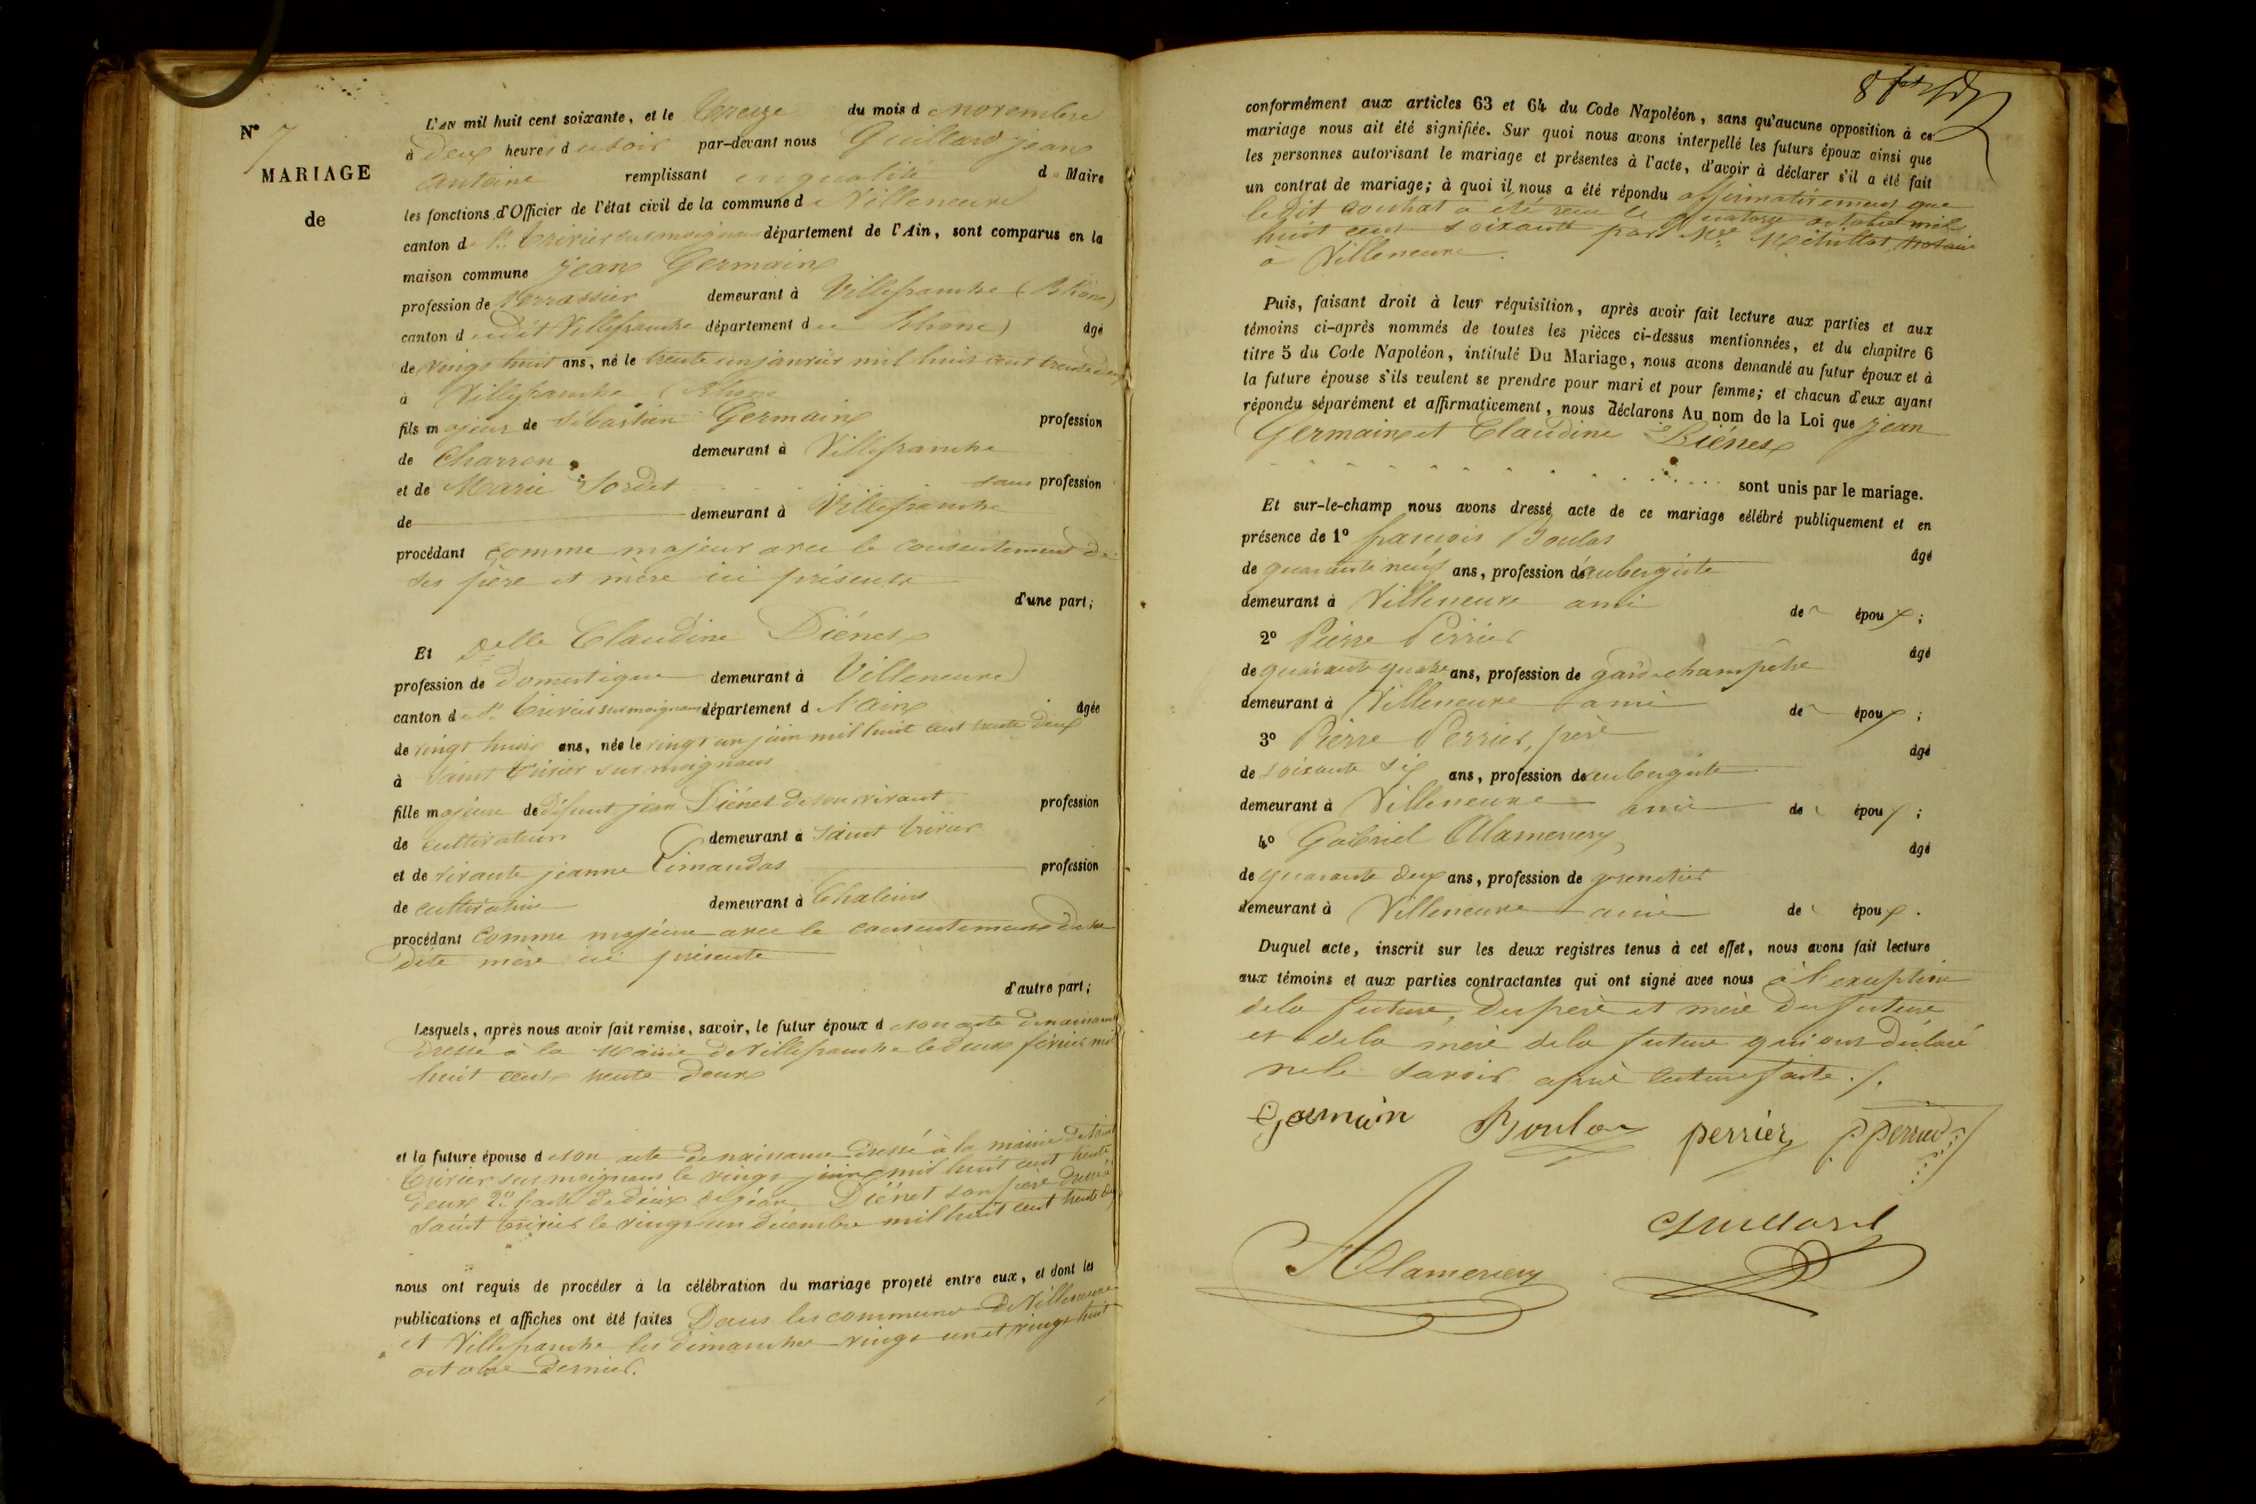 N° 7
MARIAGE
de
L'AN mil huit cent soixante, et le treize du mois de novembre
à deux heures du soir par-devant nous Guillard jean
antoine remplissant en qualité de Maire
les fonctions d'Officier de l'état civil de la commune de Villeneuve
canton de St. trivier sur moignans département de l'Ain, sont comparus en la
maison commune jean Germain
profession de terrassier demeurant à Villefranche (Rhône)
canton dudit Villefranche département du Rhône) âgé
de vingt huit ans, né le trente un janvier mil huit cent trente deux
à Villefranche (Rhône
fils majeur de Sébastien Germain profession
de Charron demeurant à Villefranche
et de Marie Sordet sans profession
de demeurant à Villefranche
procédant comme majeur avec le consentement de
ses père et mère ici présents
d'une part;
Et Delle Claudine Diénet
profession de domestique demeurant à Villeneuve
canton de St. trivier sur moignans département de l'Ain âgée
de vingt huit ans, née le vingt un juin mil huit cent trente deux
à Saint trivier sur moignans
fille majeure de défunt jean Diénet de son vivant profession
de cultivateur demeurant à Saint trivier
et de vivante jeanne Limandas profession
de cultivatrice demeurant à Chaleins
procédant comme majeure avec le consentement de sa
dite mère ici présente
d'autre part;
Lesquels, après nous avoir fait remise, savoir, le futur époux de son acte de naissance
dressé à la Mairie de Villefranche le deux février mil
huit cent trente deux
et la future épouse de son acte de naissance dressé à la mairie de Saint
trivier sur moignans le vingt juin mil huit cent trente
deux 2° l'acte de décès de jean Diénet son père dressé à
Saint trivier le vingt un décembre mil huit cent trente
nous ont requis de procéder à la célébration du mariage projeté entre eux, et dont les
publications et affiches ont été faites Dans les communes de Villeneuve
et Villefranche les dimanches vingt un et vingt huit
octobre dernier.
conformément aux articles 63 et 64 du Code Napoléon, sans qu'aucune opposition à ce
mariage nous ait été signifiée. Sur quoi nous avons interpellé les futurs époux ainsi que
les personnes autorisant le mariage et présentes à l'acte, d'avoir à déclarer s'il a été fait
un contrat de mariage; à quoi il nous a été répondu affirmativement que
le dit contrat a été reçu le quatorze octobre mil
huit cent soixante par Me notaire
à Villeneuve.
Puis, faisant droit à leur réquisition, après avoir fait lecture aux parties et aux
témoins ci-après nommés de toutes les pièces ci-dessus mentionnées, et du chapitre 6
titre 5 du Code Napoléon, intitulé Du Mariage, nous avons demandé au futur époux et à
la future épouse s'ils veulent se prendre pour mari et pour femme; et chacun d'eux ayant
répondu séparément et affirmativement, nous déclarons Au nom de la Loi que jean
Germain et Claudine Diénet
sont unis par le mariage.
Et sur-le-champ nous avons dressé acte de ce mariage célébré publiquement et en
présence de 1° françois Boulas âgé
de quarante neuf ans, profession d'aubergiste
demeurant à Villeneuve ami de époux;
2° Pierre Perrier âgé
de quarante quatre ans, profession de garde champêtre
demeurant à Villeneuve ami de époux;
3° Pierre Perrier, père âgé
de soixante six ans, profession de aubergiste
demeurant à Villeneuve ami de époux;
4° Gabriel Alamercery âgé
de quarante deux ans, profession de grenetier
demeurant à Villeneuve ami de époux.
Duquel acte, inscrit sur les deux registres tenus à cet effet, nous avons fait lecture
aux témoins et aux parties contractantes qui ont signé avec nous à l'exception
de la future, des père et mère du future
et de la mère de la future qui ont déclaré
ne le savoir après lecture faite ./.
Germain Boulas perrier P perrier
Alamercery Guillard